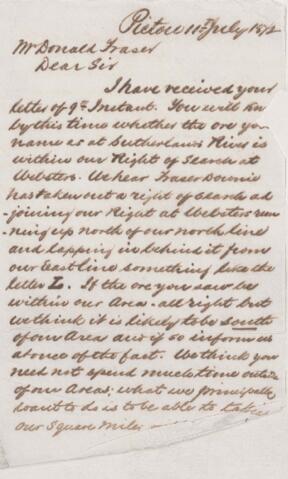 Pictou 11th July 1872
Mr Donald Fraser
Dear Sir
I have received your
letter of 9th Instant. You will
by this time whether the ore you
name as at Sutherlands River is
within our Right of Search at
Websters. We hear Fraser Downie
has taken out a right of Search ad
-joining our Right at Websters run
-ning up north of our north line
and lapping in behind it from
our East line something like the
letter L. If the ore you saw be
within our Area - all right but
we think it is likely to be south
of our Area and if so inform us
at once of the fact. We think you
need not spend much time outside
of our Areas; what we principally
want to do is to be able to
our Square Miles